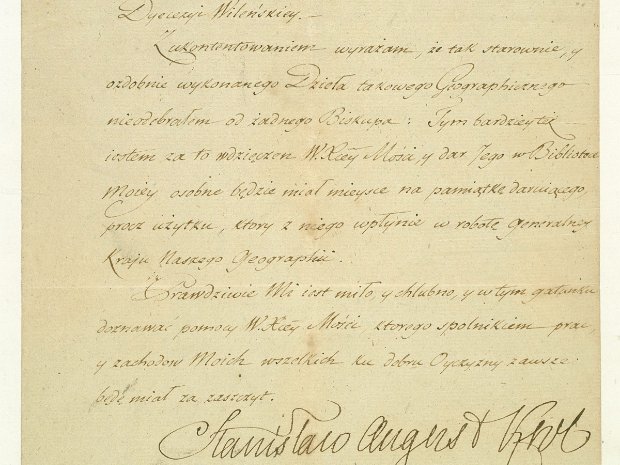 Dyecezyi Wileńskiey. —
Z ukontentowaniem wyrażam, że tak starownie, y
ozdobnie wykonanego Dzieła takowego Geographicznego
nieodebrałem od żadnego Biskupa: Tym bardziey też
iestem za to wdzięczen W. Xcey Mości, y dar Jego w Bibliotece
Moiey osobne będzie miał mieysce na pamiątkę daruiącego,
procz użytku, ktory z niego wpłynie w robotę Generalney
Kraju Naszego Geographii.
Prawdziwie Mi iest miło, y chlubno, y w tym gatunku
doznawać pomocy W. Xcey Mości, ktorego spolnikiem prac,
y zachodow Moich wszelkich ku dobru Oyczyzny zawsze
będę miał za zaszczyt.
Stanisław August Krol